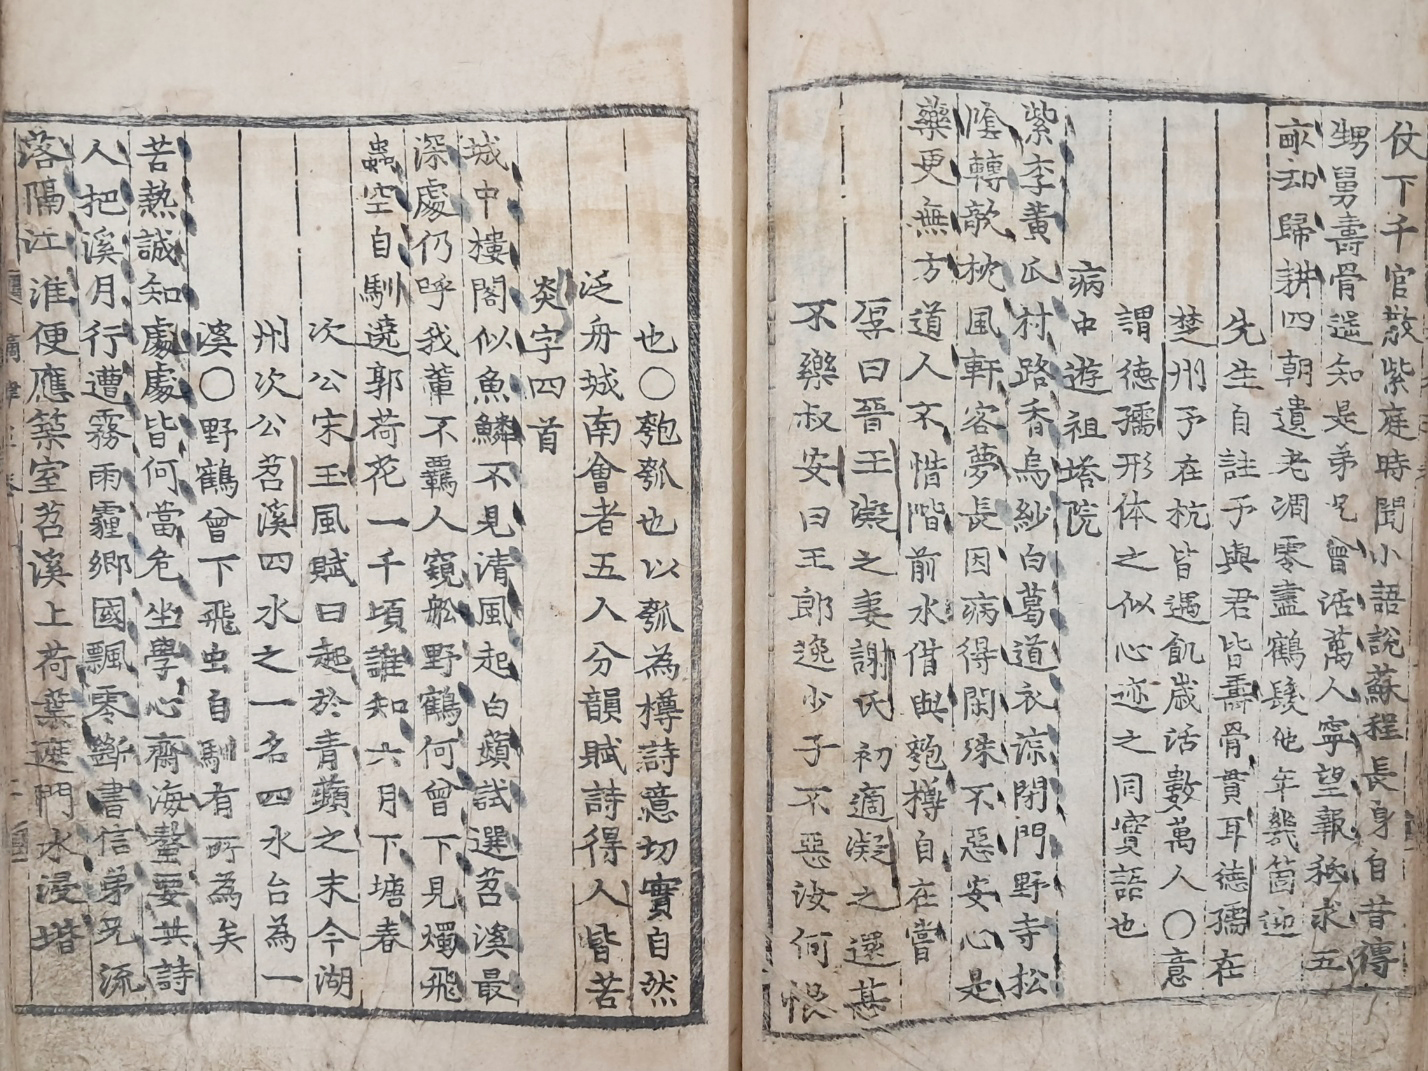 仗下千官散紫庭時聞小語說蘇程長身自昔傳
甥舅壽骨遥知是弟兄曾活萬人寧望報秪求五
畝却歸耕四朝遺老凋零盡鶴髮他年幾箇迎
先生自註予與君皆壽骨貫耳徳孺在
楚州予在杭皆遇飢歳活數萬人〇意
謂徳孺形体之似心迹之同實語也
病中遊祖塔院
紫李黄瓜村路香烏紗白葛道衣凉閉門野寺松
陰轉欹枕風軒客夢長因病得閑殊不惡安心是
藥更無方道人不惜階前水借與匏樽自在嘗
厚曰晉王凝之妻謝氏初適凝之還甚
不樂叔安曰王郎逸少子不惡汝何恨
也〇匏瓠也以瓠為樽詩意切實自然
泛舟城南會者五人分韻賦詩得人皆苦
炎字四首
城中樓閣似魚鱗不見清風起白蘋試選苕溪最
深處仍呼我輩不羈人窺舩野鶴何曾下見燭飛
蟲空自馴遶郭荷花一千頃誰知六月下塘春
次公宋玉風賦曰起於青蘋之末今湖
州次公苕溪四水之一名四水台為一
溪〇野鶴曾下飛虫自馴有所為矣
苦熱誠知處處皆何當危坐學心齋海螯要共詩
人把溪月行遭霧雨霾鄉國飄零斷書信弟兄流
落隔江淮便應築室苕溪上荷葉遮門水浸堦